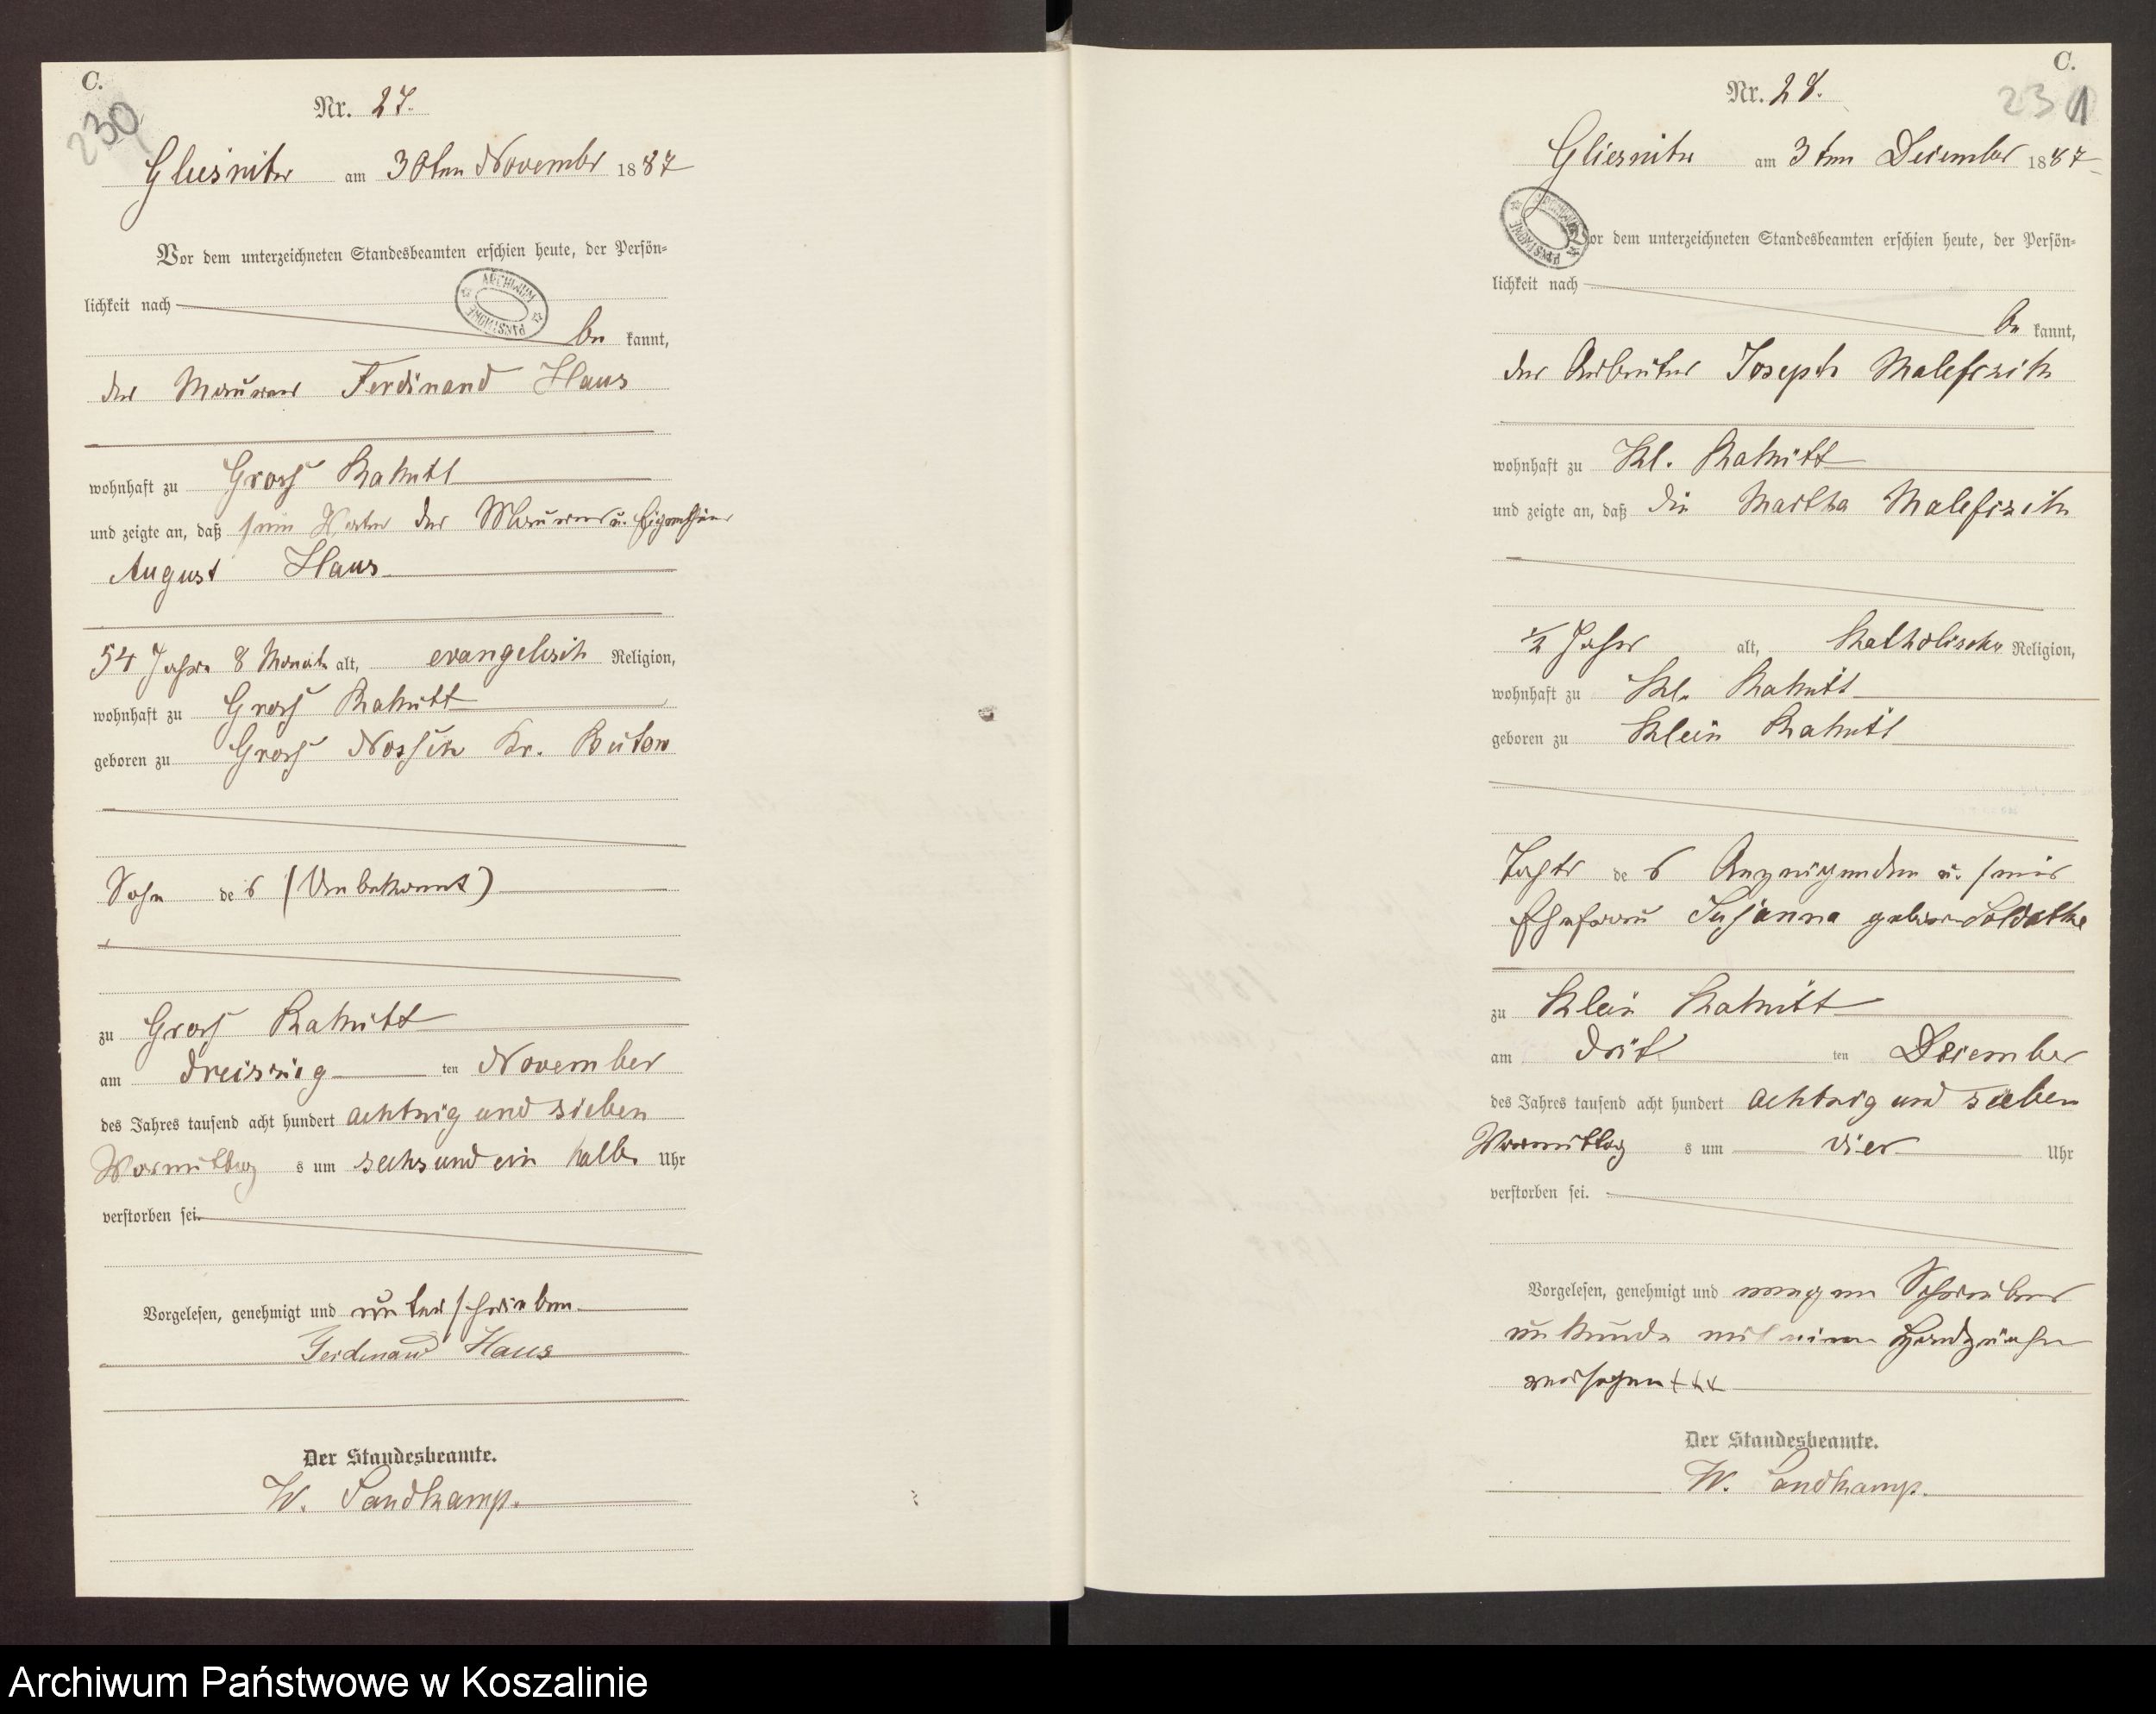 C.
230
Nr. 27.
Gliesnitz am 30ten November 1887
Vor dem unterzeichneten Standesbeamten erschien heute, der Persön=
lichkeit nach
ARCHIWUM PAŃSTWOWE
be kannt,
der Maurer Ferdinand Haus
wohnhaft zu Gross Rakitt
und zeigte an, daß sein Vater der Maurer u. Eigenthümer
August Haus
54 Jahre 8 Monate alt, evangelisch Religion,
wohnhaft zu Gross Rakitt
geboren zu Gross Nossin Kr. Bütow
Sohn des (Unbekannt)
zu Gross Rakitt
am dreissig ten November
des Jahres tausend acht hundert achtzig und sieben
Vormittag s um sechs und ein halb Uhr
verstorben sei.
Vorgelesen, genehmigt und unterschrieben
Ferdinand Haus
Der Standesbeamte.
W. Sandkamp.
C.
231
Nr. 28.
Gliesnitz am 3ten Dezember 1887
ARCHIWUM PAŃSTWOWE
Vor dem unterzeichneten Standesbeamten erschien heute, der Persön=
lichkeit nach
be kannt,
der Arbeiter Joseph Malefzik
wohnhaft zu Kl. Rakitt
und zeigte an, daß die Martha Malefzik
1/2 Jahr alt, katholischer Religion,
wohnhaft zu Kl. Rakitt
geboren zu Klein Rakitt
Tochter des Anzeigenden u. seiner
Ehefrau Susanna geborene Soldatke
zu Klein Rakitt
am drit ten Dezember
des Jahres tausend acht hundert achtzig und sieben
Vormittag s um vier Uhr
verstorben sei.
Vorgelesen, genehmigt und wegen Schreibens
unkunde mit einem Handzeichen
versehen +++
Der Standesbeamte.
W. Sandkamp.
Archiwum Państwowe w Koszalinie